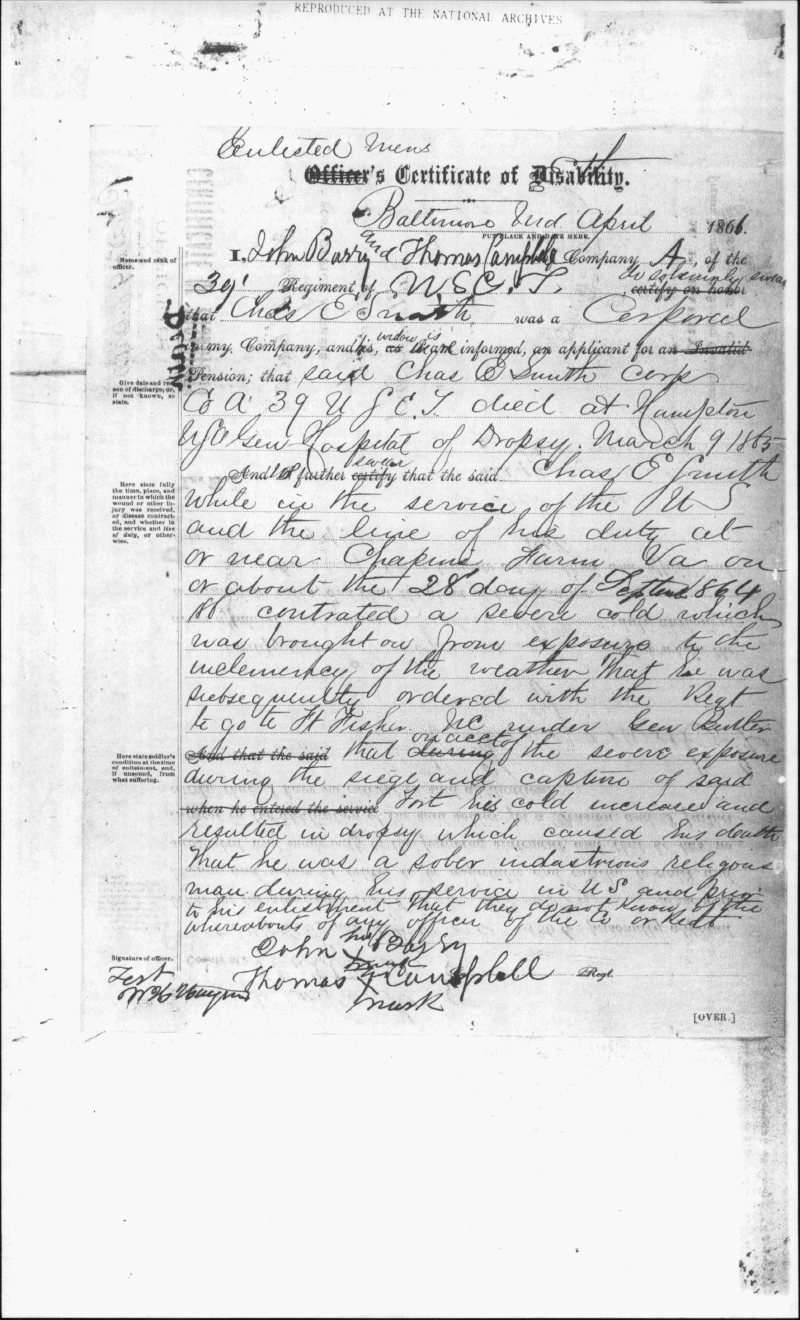 REPRODUCED AT THE NATIONAL ARCHIVES
Enlisted Mens
Officer's Certificate of Disability.
Baltimore 2nd April 1866.
PUT PLACE AND DATE HERE.
Name and rank of officer.
I, John Barry and Thomas Campbell Company A, of the
39' Regiment of U S C. T. do solemnly swear certify on honor
that Chas E Smith was a Corporeel
in my Company, and his widow is, as I am informed, an applicant for an Invalid
Pension; that said Chas E Smith Corp
Give date and reason of discharge; or, if not known, so state.
Co A 39 U S C. T. died at Hampton
Gen Hospital of Dropsy. March 9 1865
And I further swear certify that the said Chas E Smith
Here state fully the time, place, and manner in which the wound or other injury was received, or disease contracted, and whether in the service and line of duty, or otherwise.
while in the service of the U S
and the line of his duty at
or near Chapins Farm Va on
or about the 28 day of Septem 1864
contrated a severe cold which
was brought on from exposure to the
inclemency of the weather That he was
subsequently ordered with the Regt
to go to Ft Fisher NC under Gen Butler
Here state soldier's condition at the time of enlistment, and, if unsound, from what suffering.
And that the said that during on acct of the severe exposure
during the siege and capture of said
when he entered the service Fort his cold increase and
resulted in dropsy which caused his death
That he was a sober indastrious religous
man during his service in U S and prior
to his enlistment That they do not know of the
whereabouts of any officer of the Co or Regt
Signature of officer.
John his X Barry
mark
Thomas X Campbell Regt.
mark
Test
[OVER.]